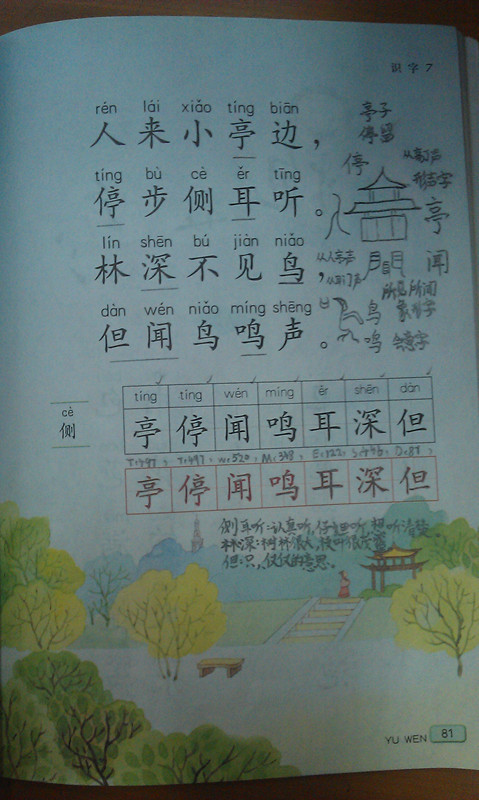 识字7
rén lái xiǎo tíng biān
人来小亭边，
tíng bù cè ěr tīng
停步侧耳听。
lín shēn bú jiàn niǎo
林深不见鸟，
dàn wén niǎo míng shēng
但闻鸟鸣声。
亭子
停留
停
形声字
亭
闻
鸟
鸣 会意字
cè
侧
tíng tíng wén míng ěr shēn dàn
亭 停 闻 鸣 耳 深 但
亭 停 闻 鸣 耳 深 但
侧耳听:认真听,仔细听,想听清楚
林深:树林很大,
但:只,仅仅的意思.
YU WEN 81